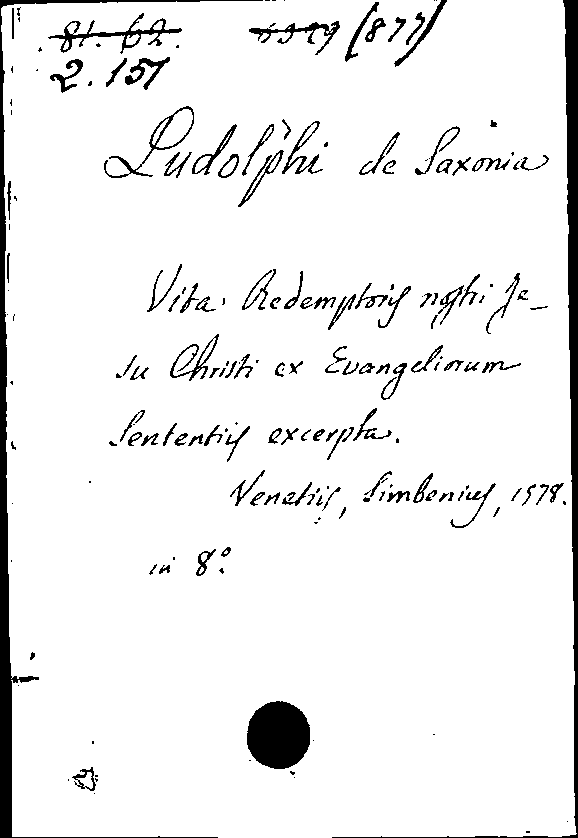 81. 62. 6329 (877)
2. 151
Ludolphi de Saxonia
Vita Redemptoris nostri Je-
su Christi ex Evangeliorum
Sententiis excerpta.
Venetiis, Simbenius, 1578.
in 8°.